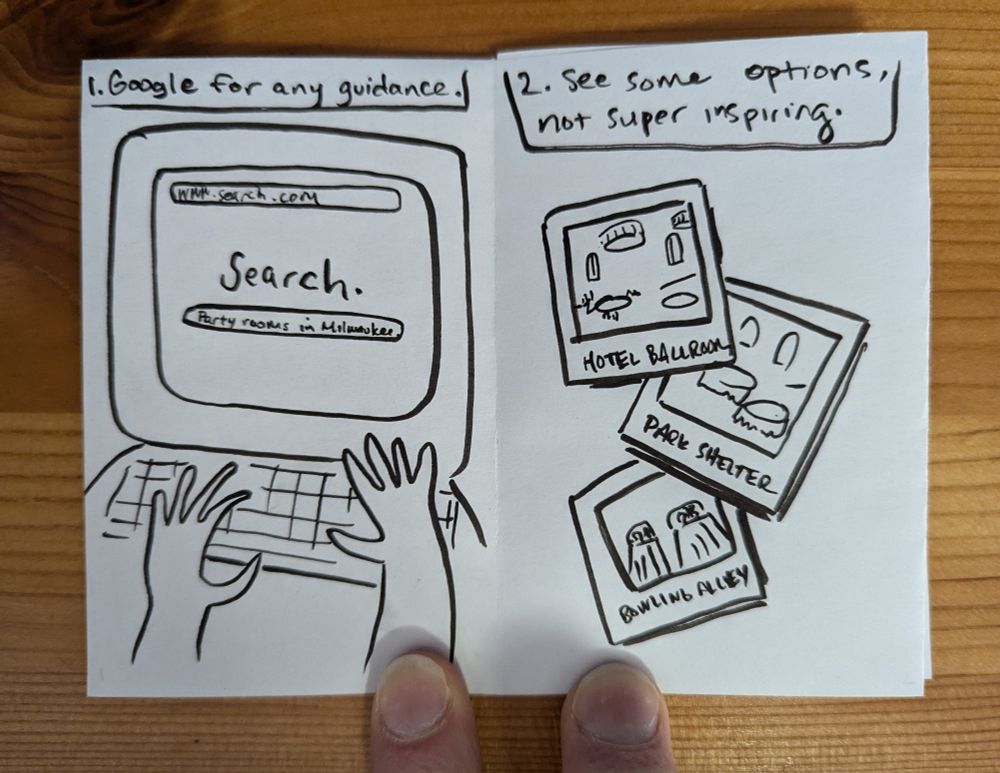 1. Google for any guidance.
www.search.com
Search.
Party rooms in Milwaukee.
2. See some options,
not super inspiring.
HOTEL BALLROOM
PARK SHELTER
BOWLING ALLEY